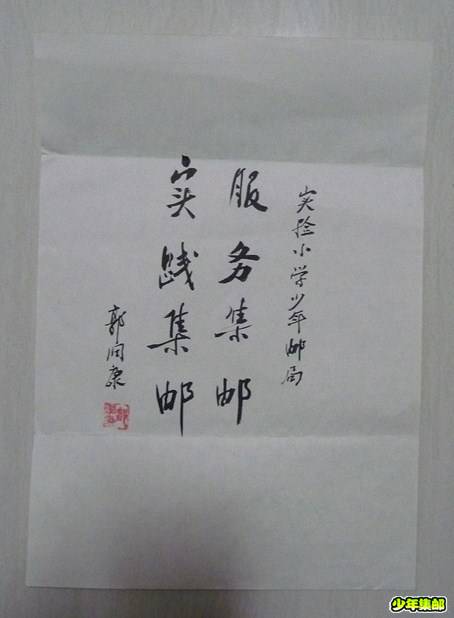 实验小学少年邮局
服务集邮
实践集邮
郭润康
少年集邮